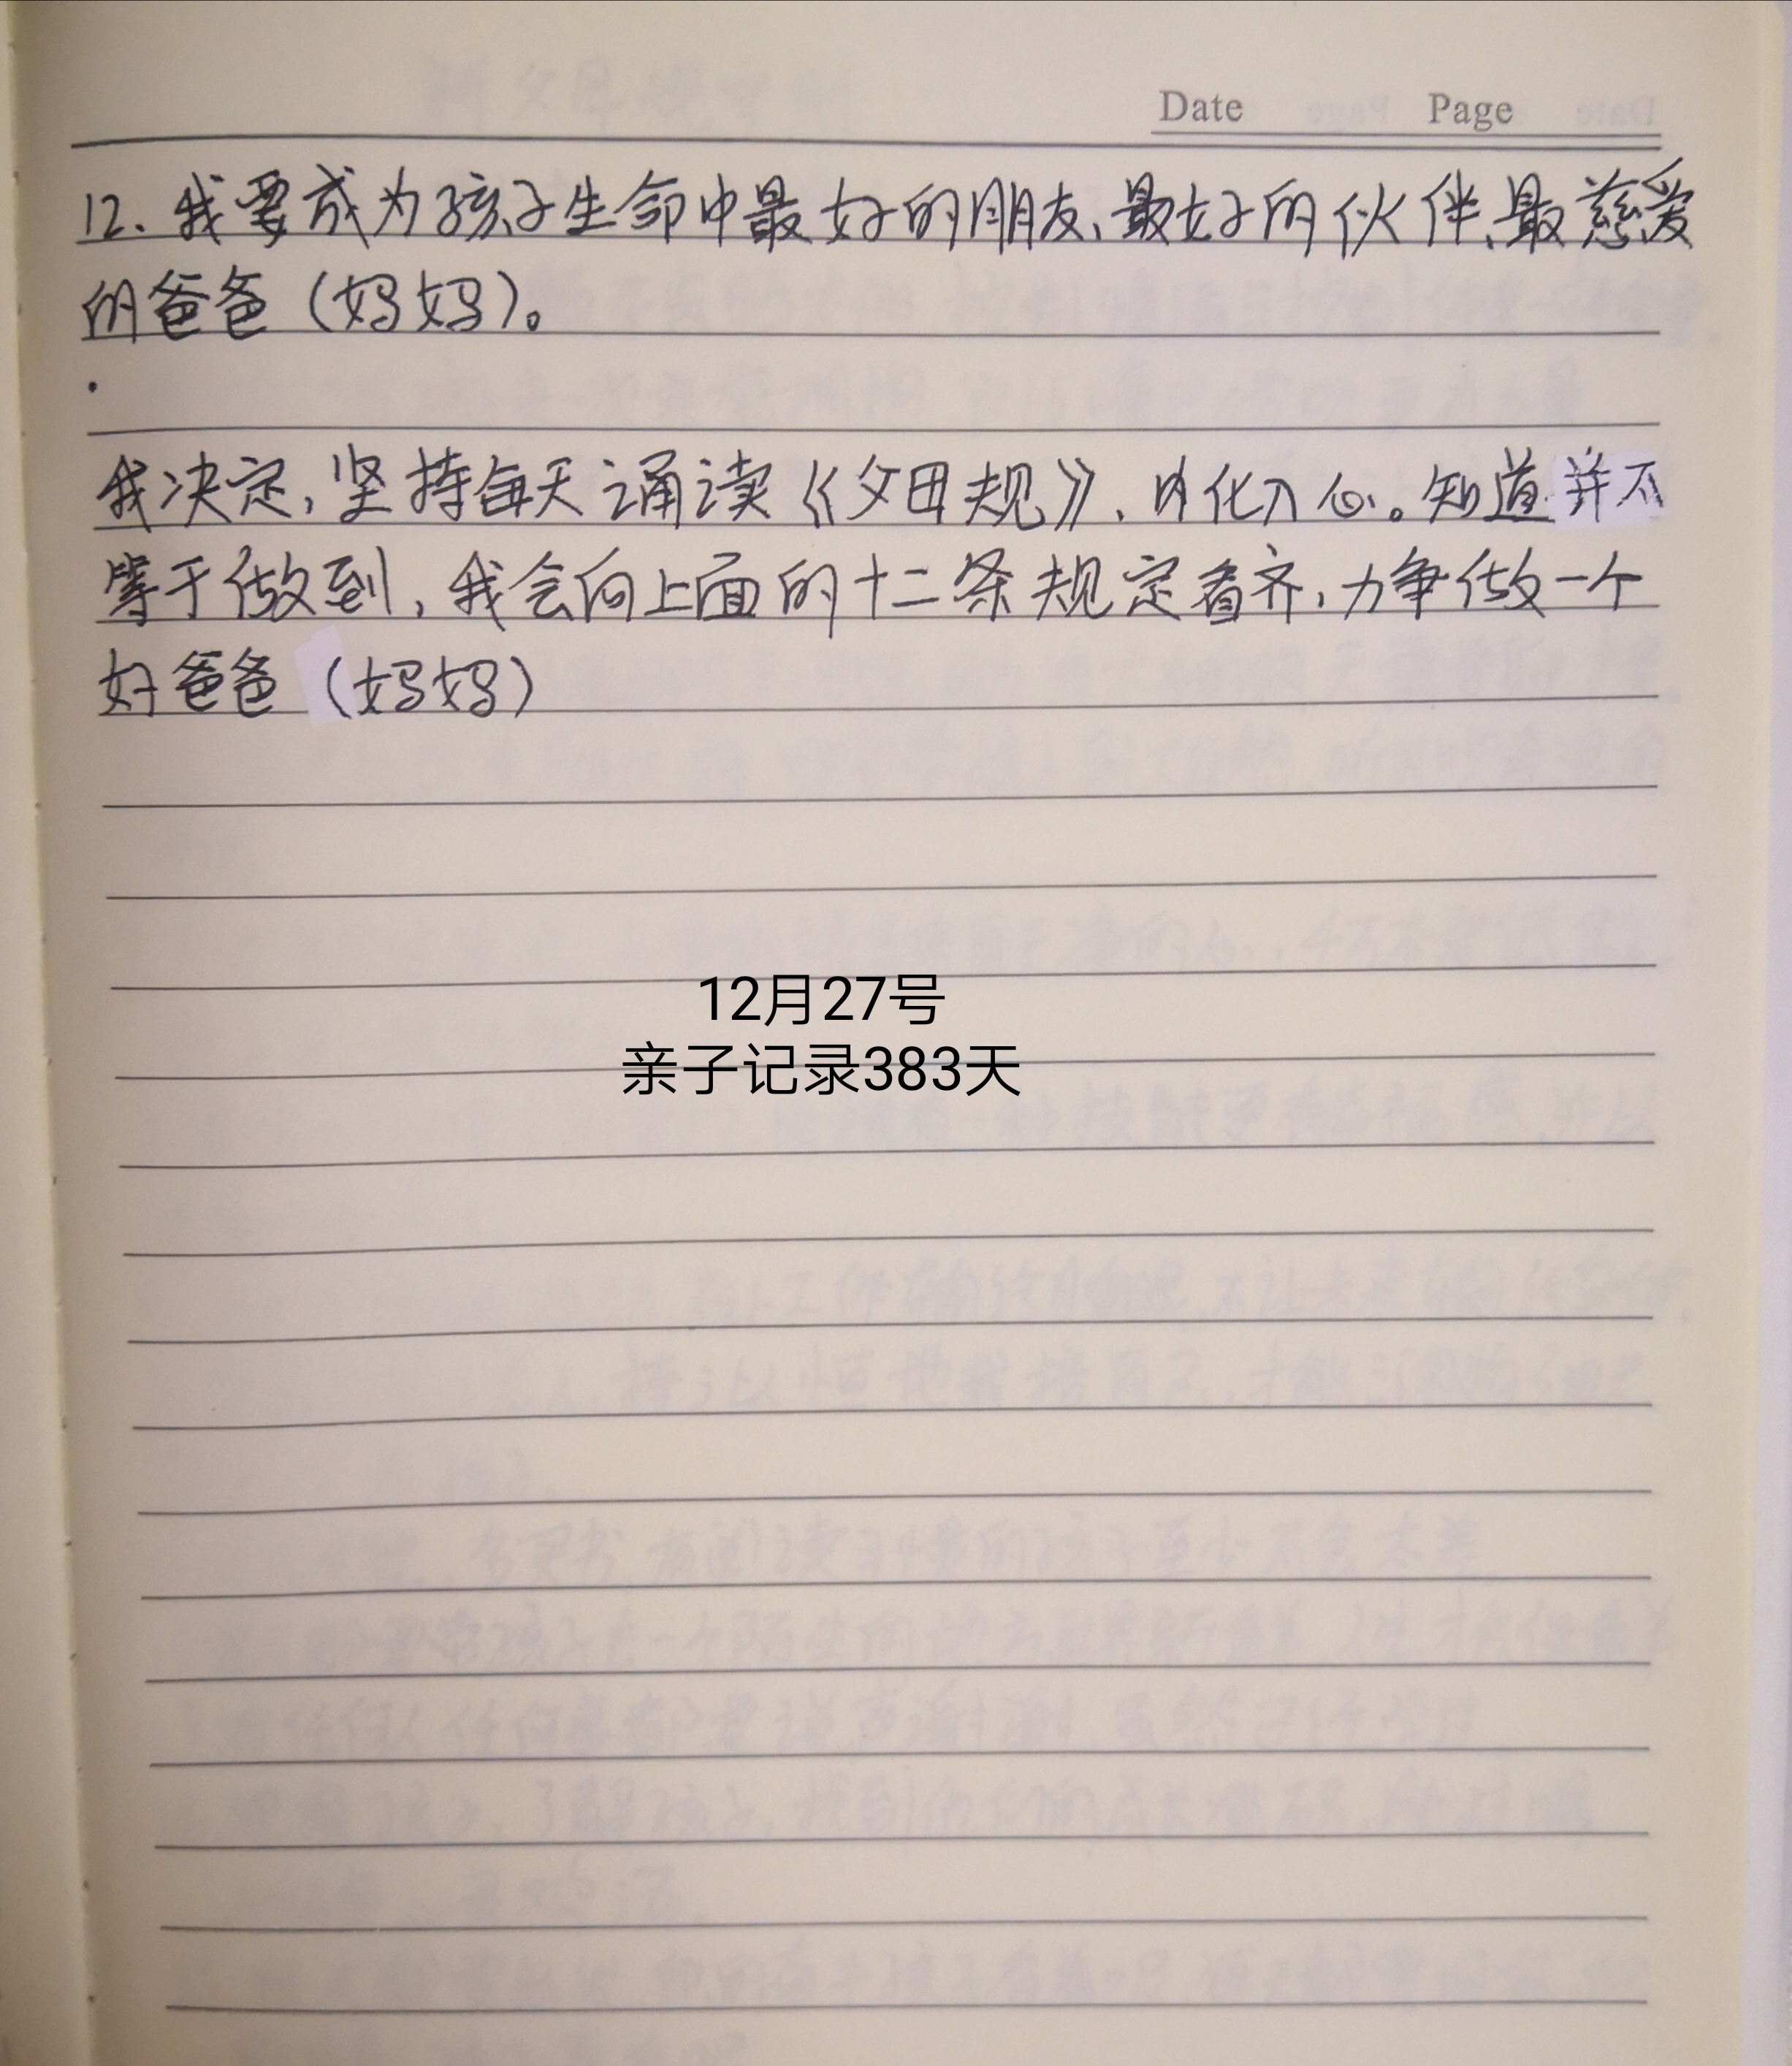 Date Page
12.我要成为孩子生命中最好的朋友、最好的伙伴、最慈爱
的爸爸(妈妈)。
我决定,坚持每天诵读《父母规》、内化入心。知道并不
等于做到,我会向上面的十二条规定看齐,力争做一个
好爸爸(妈妈)
12月27号
亲子记录383天